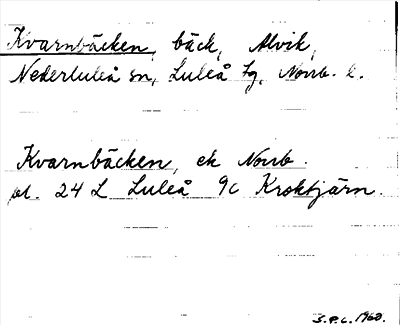 Kvarnbäcken, bäck, Alvik,
Nederluleå sn, Luleå tg, Norrb. l.
Kvarnbäcken, ek Norrb.
bl. 24 L Luleå 9c Kroktjärn.
S.P.L. 1960.